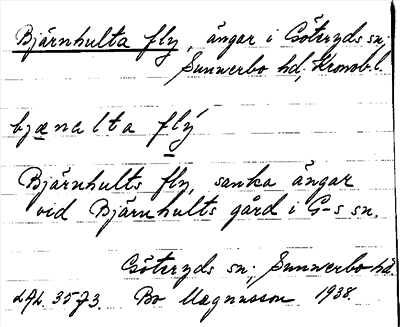 Bjärnhulta fly, ängar i Göteryds sn;
Sunnerbo hd, Kronob. l.
bjænalta flý
Bjärnhults fly, sanka ängar
vid Bjärnhults gård i G-s sn.
Göteryds sn; Sunnerbo hd.
Bo Magnusson 1938.